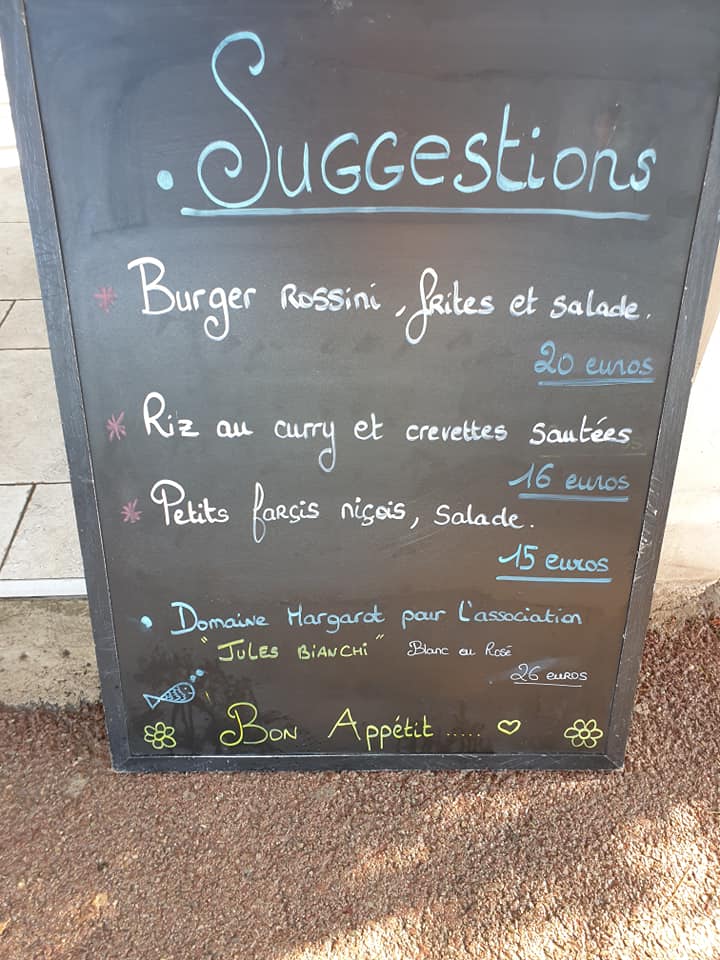 . Suggestions
* Burger Rossini, frites et salade.
20 euros
* Riz au curry et crevettes sautées
16 euros
* Petits farçis niçois, salade.
15 euros
• Domaine Margarot pour l'association
"Jules Bianchi" Blanc ou Rosé
26 euros
Bon Appétit .....